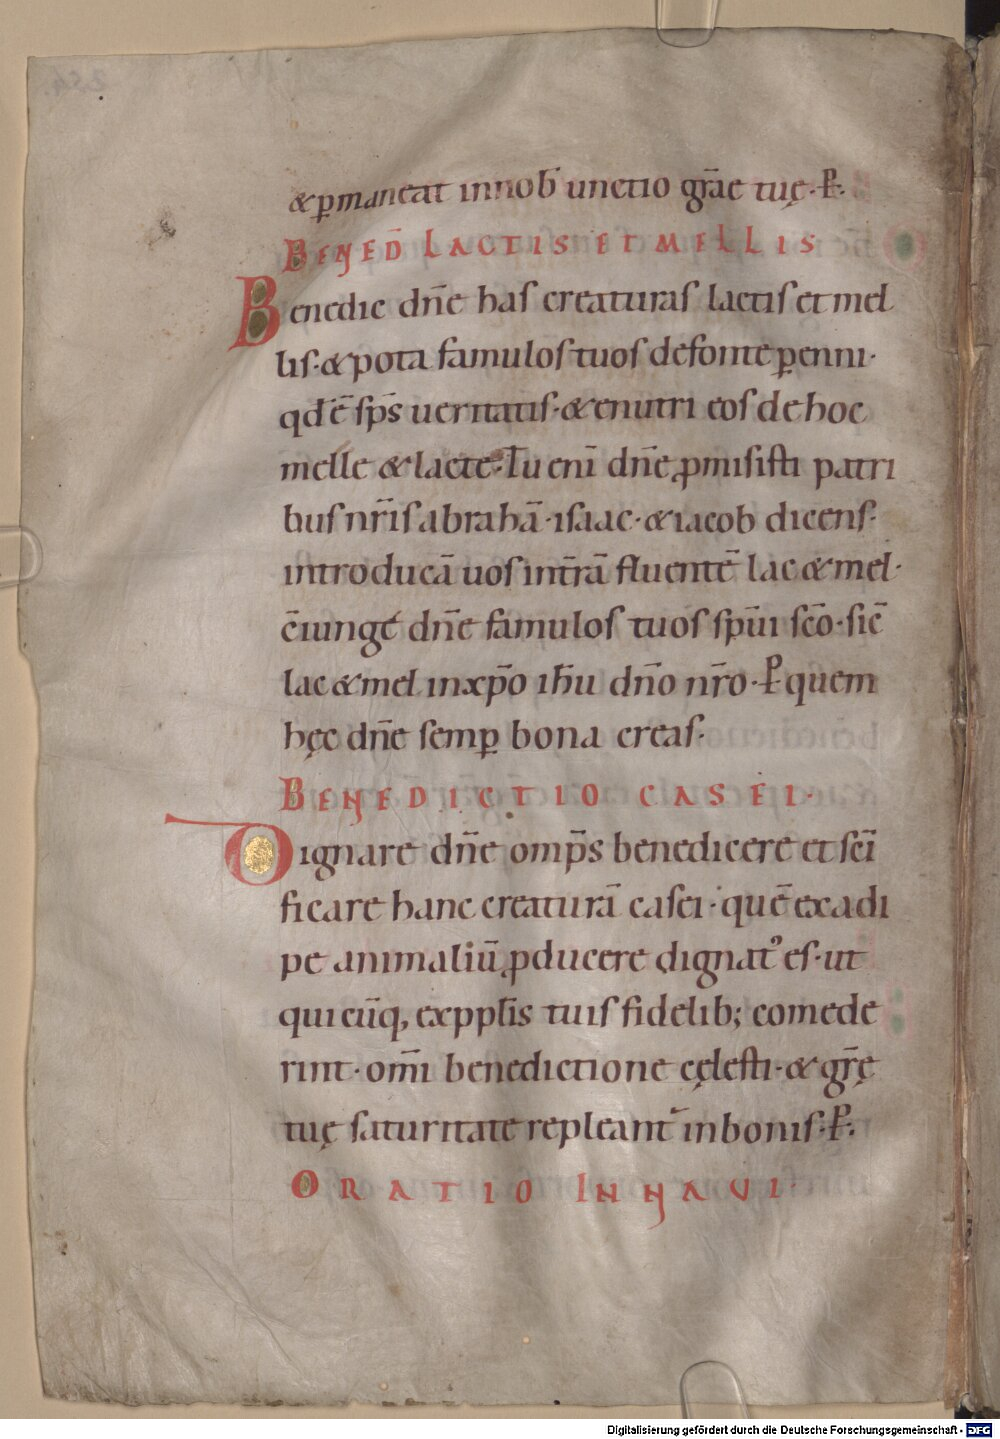 &ꝑmaneat innob̄ unctio gr̄ae tuę·P̶·
BENED̄ LACTIS ET MELLIS
Benedic dn̄e has creaturas lactis et mel
lis·&pota famulos tuos defonte ꝑenni·
qđ ē sp̄s ueritatis·&enutri eos de hoc
melle & lacte· Tu eni̅ dn̄e ꝓmisisti patri
bus nr̄is abrahā·isaac·&iacob dicens·
introducā uos intr̄ā fluentē lac & mel·
c̄iunge dn̄e famulos tuos sp̄ui sc̄o·sic̄
lac & mel inxp̄o ih̄u dn̄o nr̄o·P̶ quem
hęc dn̄e semꝑ bona creas·
BENEDICTIO CASEI·
Dignare dn̄e omp̄s benedicere et sc̄i
ficare hanc creaturā casei·quē exadi
pe animaliū ꝓducere dignatꝰ es·ut
quicūq, expplis̄ tuis fidelib; comede
rint·om̄i benedictione cęlesti·&gr̄ę
tuę saturitate repleant᷑ inbonis·P̶·
ORATIO IN NAVI·
Digitalisierung gefördert durch die Deutsche Forschungsgemeinschaft - DFG